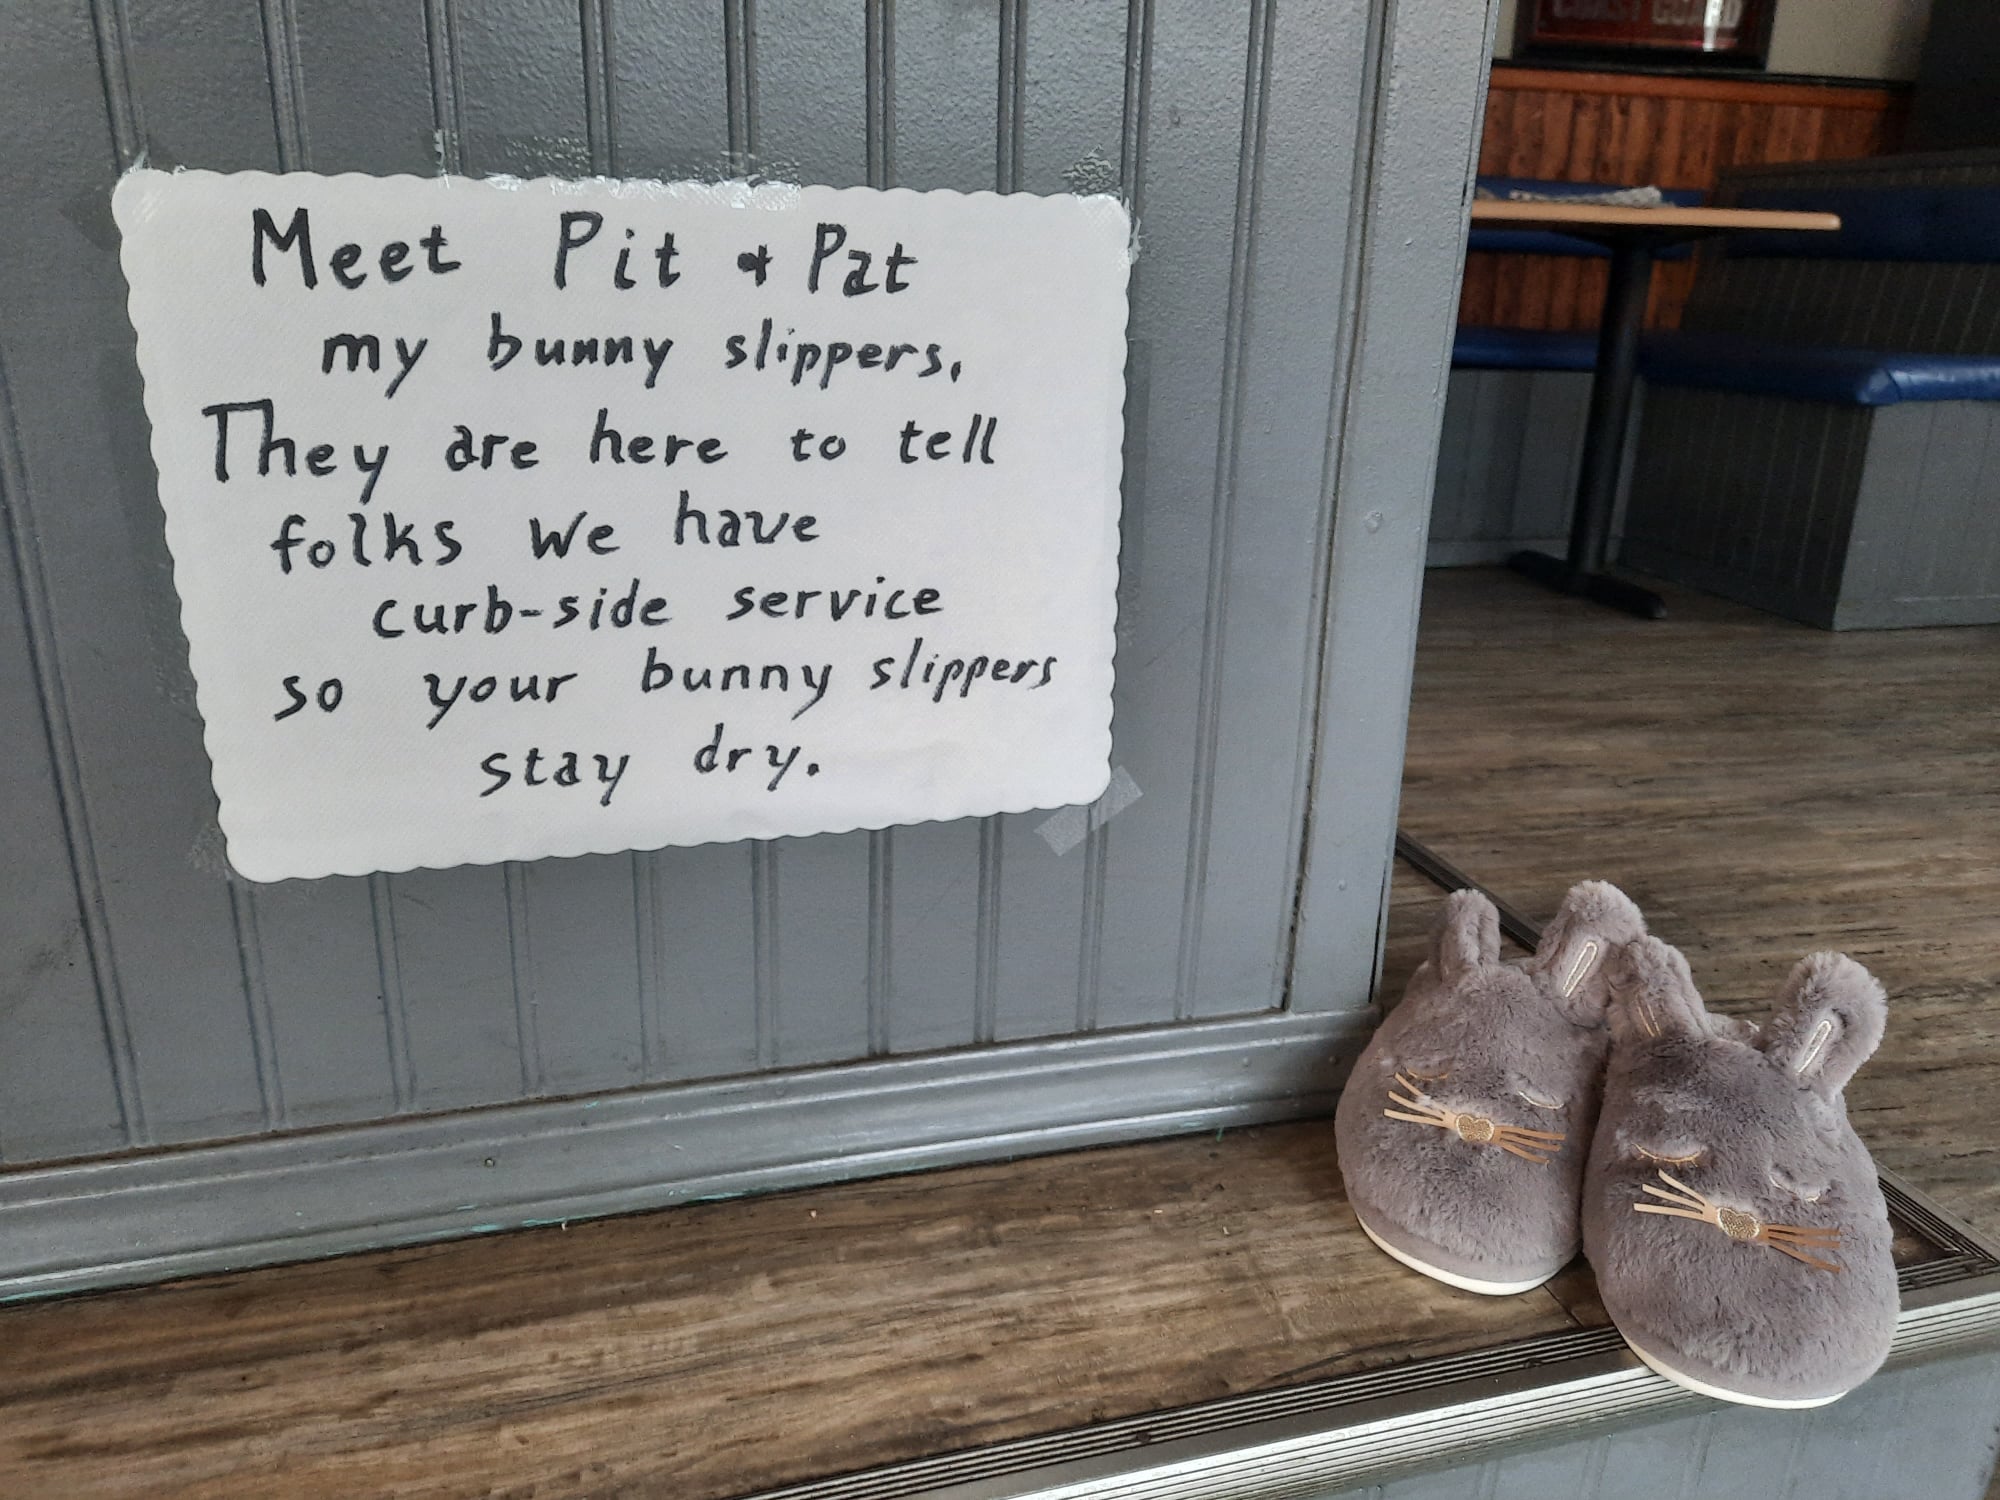 COAST GUARD
Meet Pit & Pat
my bunny slippers.
They are here to tell
folks we have
curb-side service
so your bunny slippers
stay dry.